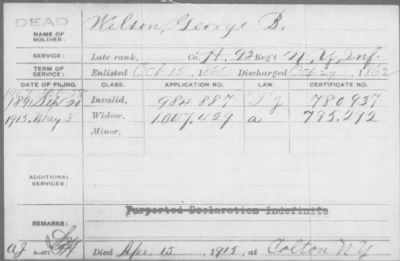 DEAD
NAME OF SOLDIER: Wilson, George B.
SERVICE: Late rank, Co. H, 92 Reg't N.Y. Inf.
TERM OF SERVICE: Enlisted Oct. 15, 1861 Discharged Oct. 1862
DATE OF FILING. CLASS. APPLICATION NO. LAW. CERTIFICATE NO.
Sep 20 Invalid, 984.887 780937
1915. May 3 Widow, 1.047.429 a 795.292
Minor,
ADDITIONAL SERVICES:
Purported Declaration Indefinite
REMARKS:
Died Apr. 15 1915, at Colton N.Y.